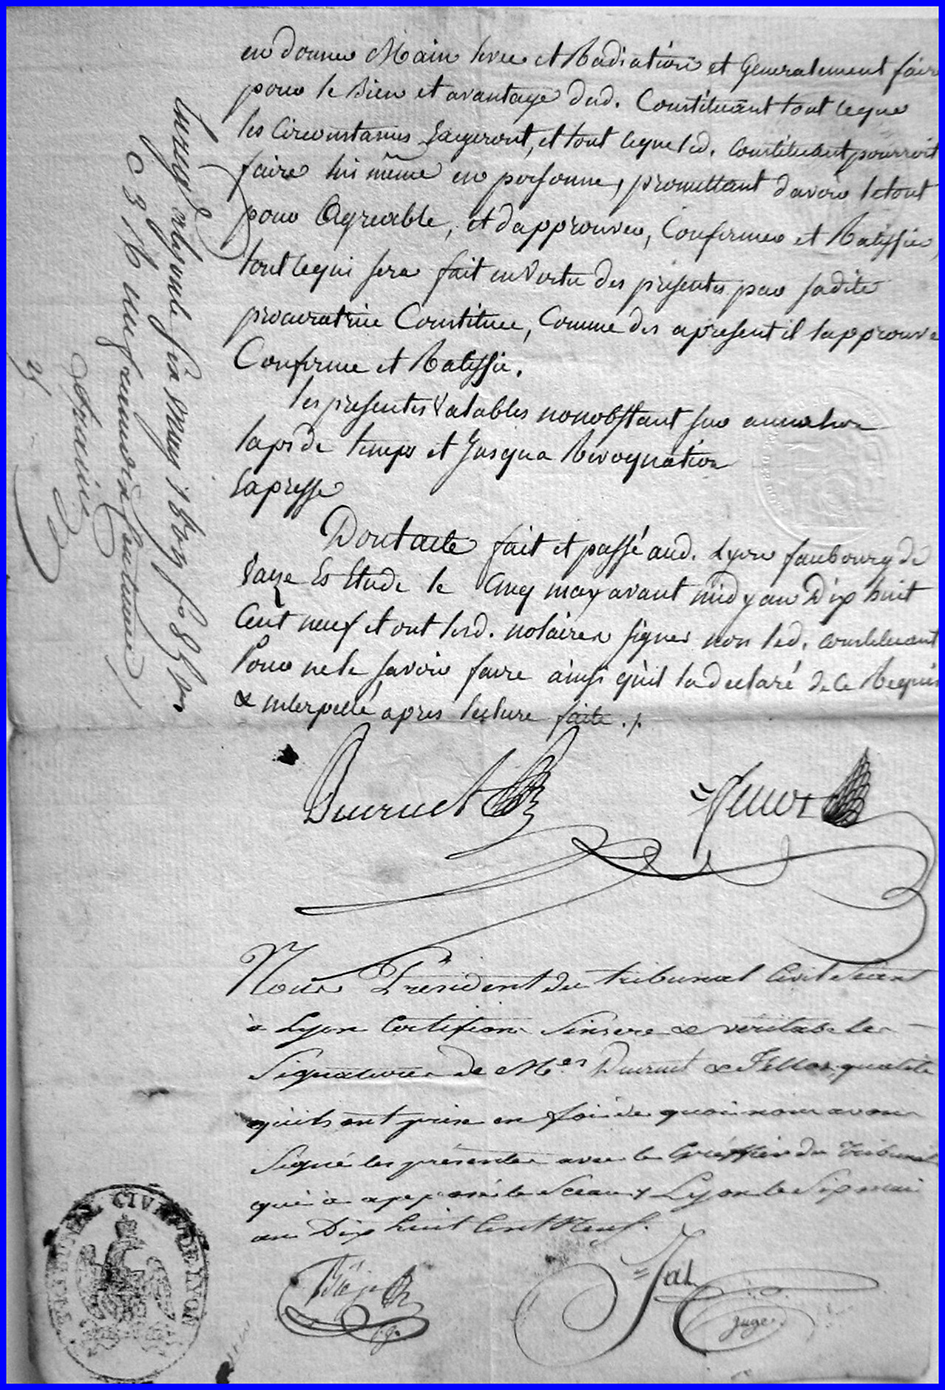 en donner Main levée et Radiation et Generalement faire
pour le Bien et avantage dud. Constituant tout ceque
les Circonstances Exigeront, et tout ceque led. constituant pourroit
faire lui même en personne, promettant d'avoir letout
pour Agreable, et d'approuver, Confirmer et Ratiffier
tout cequi sera fait en Vertu des présentes par sadite
procuratrice Constituée, Comme des apresent il l'approuve
Confirme et Ratiffie.
les presentes Valables nonobstant sur annation
laps de temps et Jusqua Revoquation
Expresse
Dont acte fait et passé aud. Lyon faubourg de
Vaize Es Etude le Cinq may avant midy an Dix huit
Cent neuf et ont lesd. notaires signer non led. constituant
Pour ne le savoir faire ainsi qu'il la declaré de ce Requis
& interpellé apres lecture faite ./.
Ducruet
Nous Président du tribunal Civil séant
à Lyon Certifions Sincere & veritable
Signatures de Mes Ducruet & qualité
qu'ils ont prise en foi de quoi nous avons
Signé les présentes avec le Greffier du Tribunal
qui a apposé le Sceau à Lyon le Six mai
an Dix huit Cent Neuf.
Jal
juge
TRIBUNAL CIVIL DE LYON
may 1809 fo 85